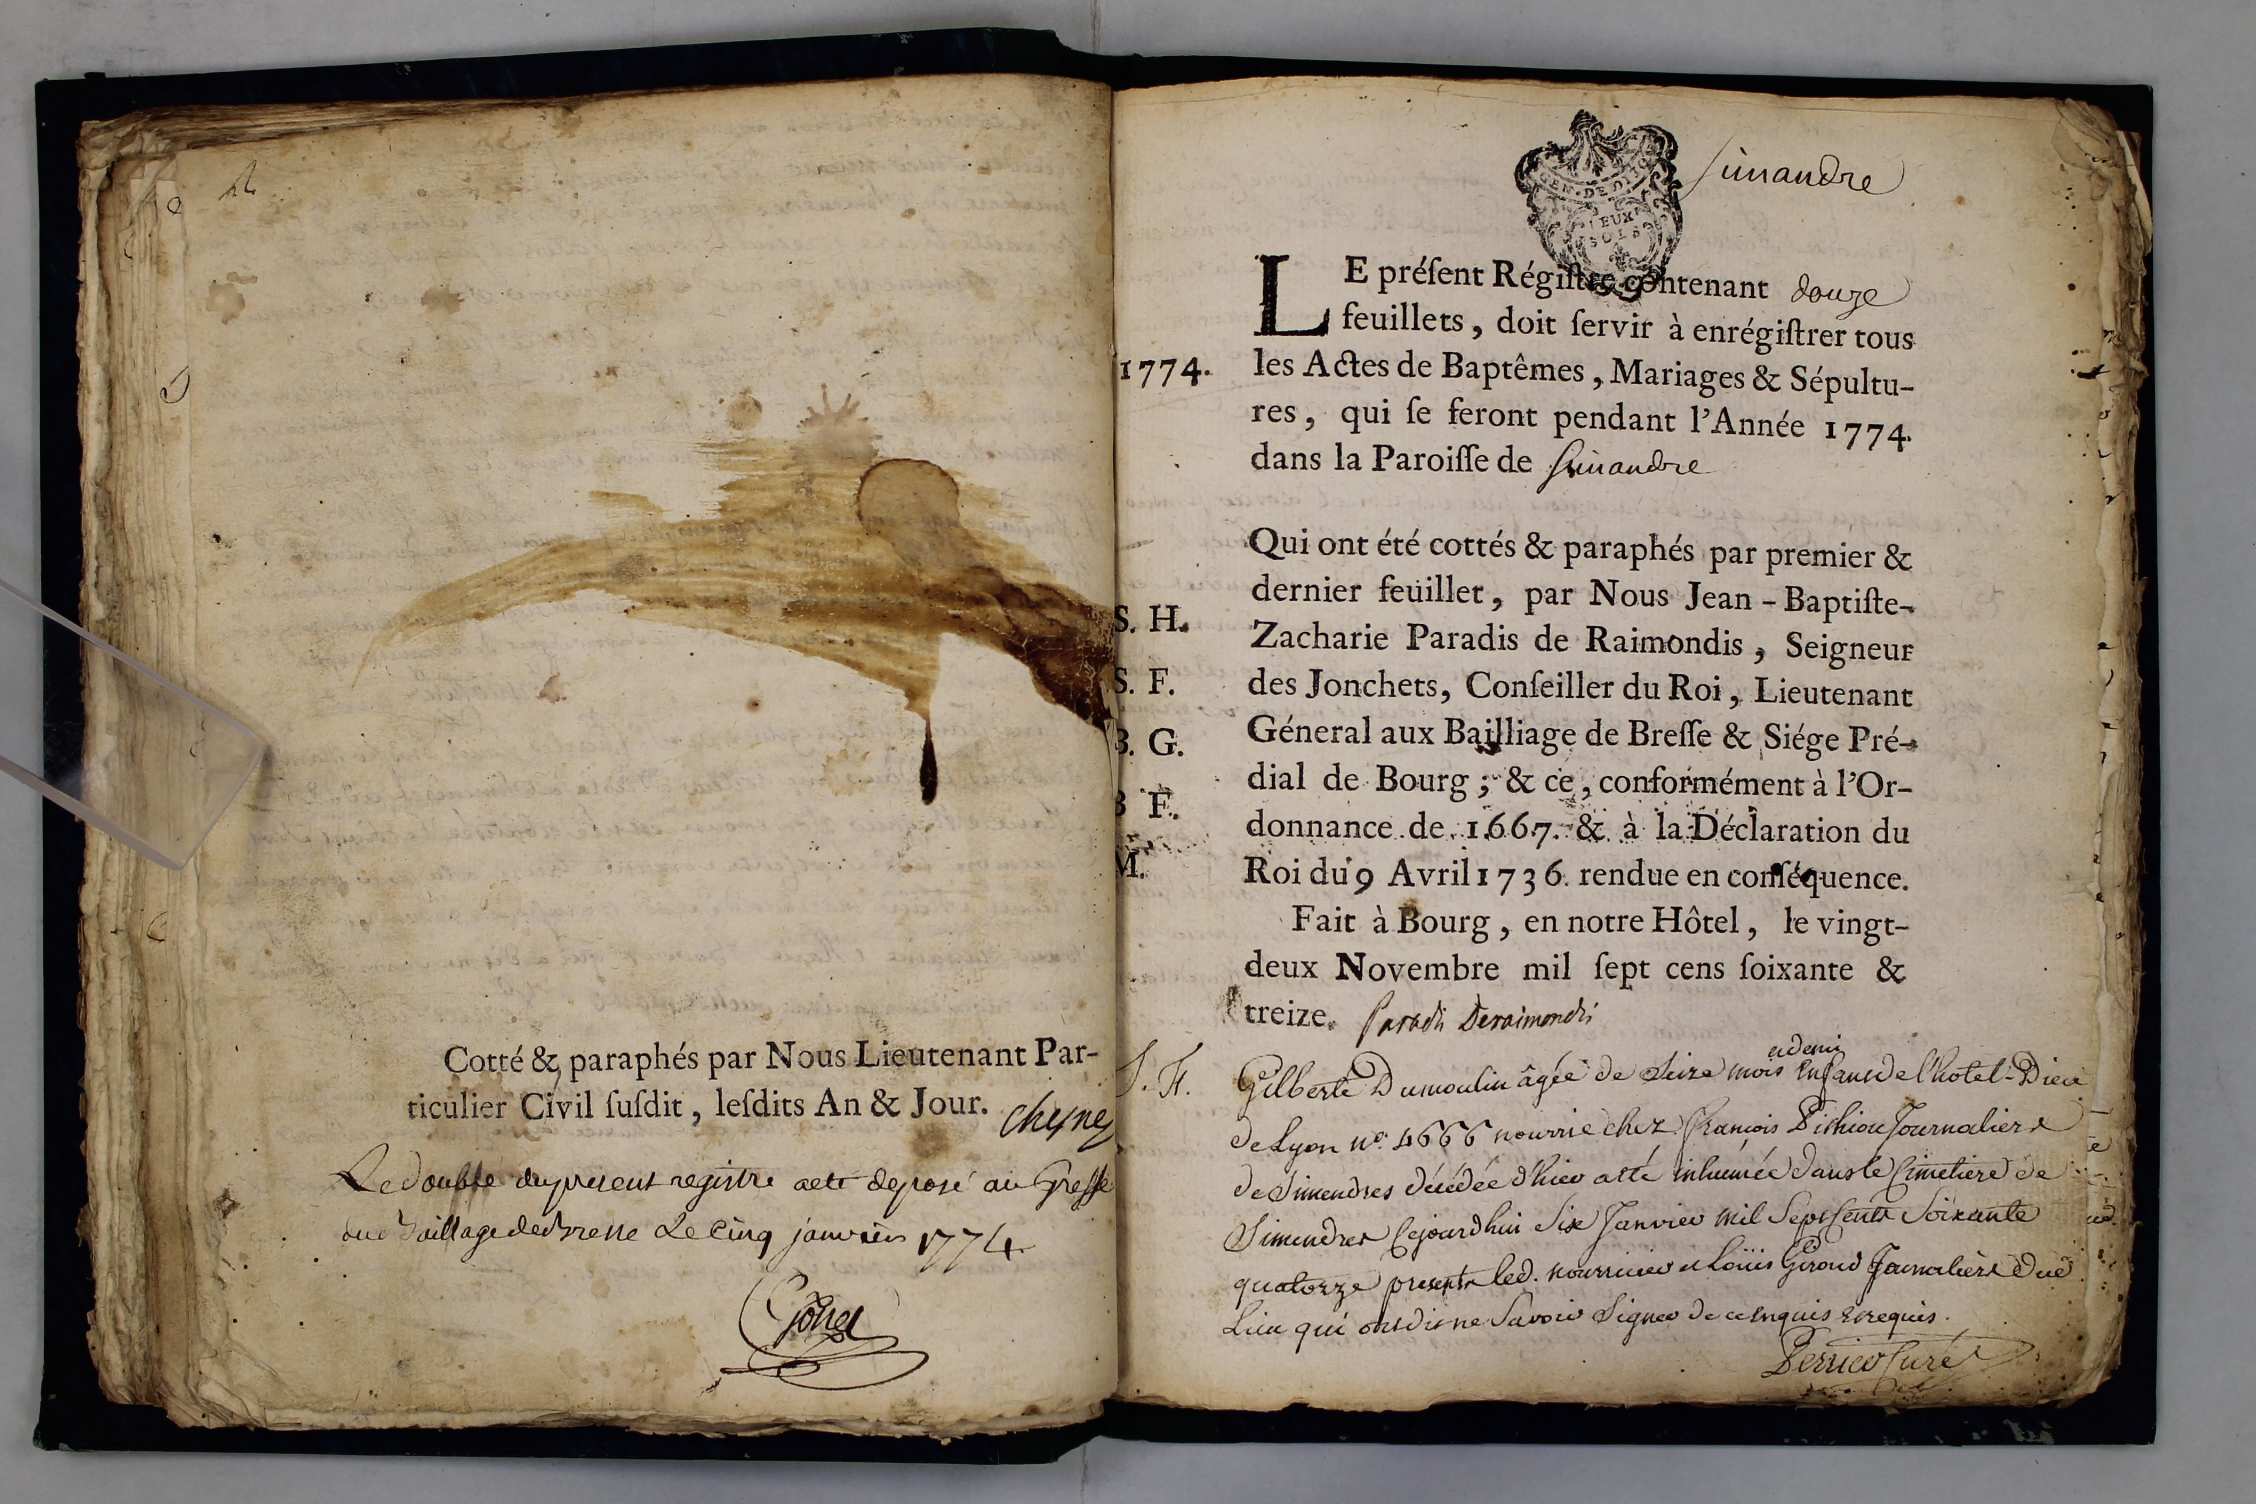 Cotté & paraphés par Nous Lieutenant Par-
ticulier Civil ſuſdit, leſdits An & Jour.
cheyney
Le double du present registre aete deposé au Greffe
du Baillage de Bresse Le Cinq janvier 1774
GEN. DE DIJON
DEUX
SOLS
Simandre
LE préſent Régiſtre contenant douze
feuillets, doit ſervir à enrégiſtrer tous
1774.
les Actes de Baptêmes, Mariages & Sépultu-
res, qui ſe feront pendant l'Année 1774.
dans la Paroiſſe de Simandre
Qui ont été cottés & paraphés par premier &
dernier feuillet, par Nous Jean-Baptiſte-
S. H.
Zacharie Paradis de Raimondis, Seigneur
S. F.
des Jonchets, Conſeiller du Roi, Lieutenant
B. G.
Géneral aux Bailliage de Breſſe & Siége Pré-
B F.
dial de Bourg; & ce, conformément à l'Or-
donnance de 1667. & à la Déclaration du
M.
Roi du 9 Avril 1736. rendue en conſéquence.
Fait à Bourg, en notre Hôtel, le vingt-
deux Novembre mil ſept cens ſoixante &
treize. Paradis Deraimondis
S. F.
Gilberte Dumoulin âgée de Seize mois et demi Enfant de l'hotel-Dieu
de Lyon no. 4666 nourrie chez François Pichiou Journalier
de Simendres décédée d'hier a été inhumée dans le Cimetiere de
Simendres Cejourdhui Six Janvier mil Sept Cents Soixante
quatorze presents led. nourricier et Loüis Giroud Journaliers dud.
Lieu qui ont dit ne Savoir Signer de ce enquis et requis.
Perrier Curé